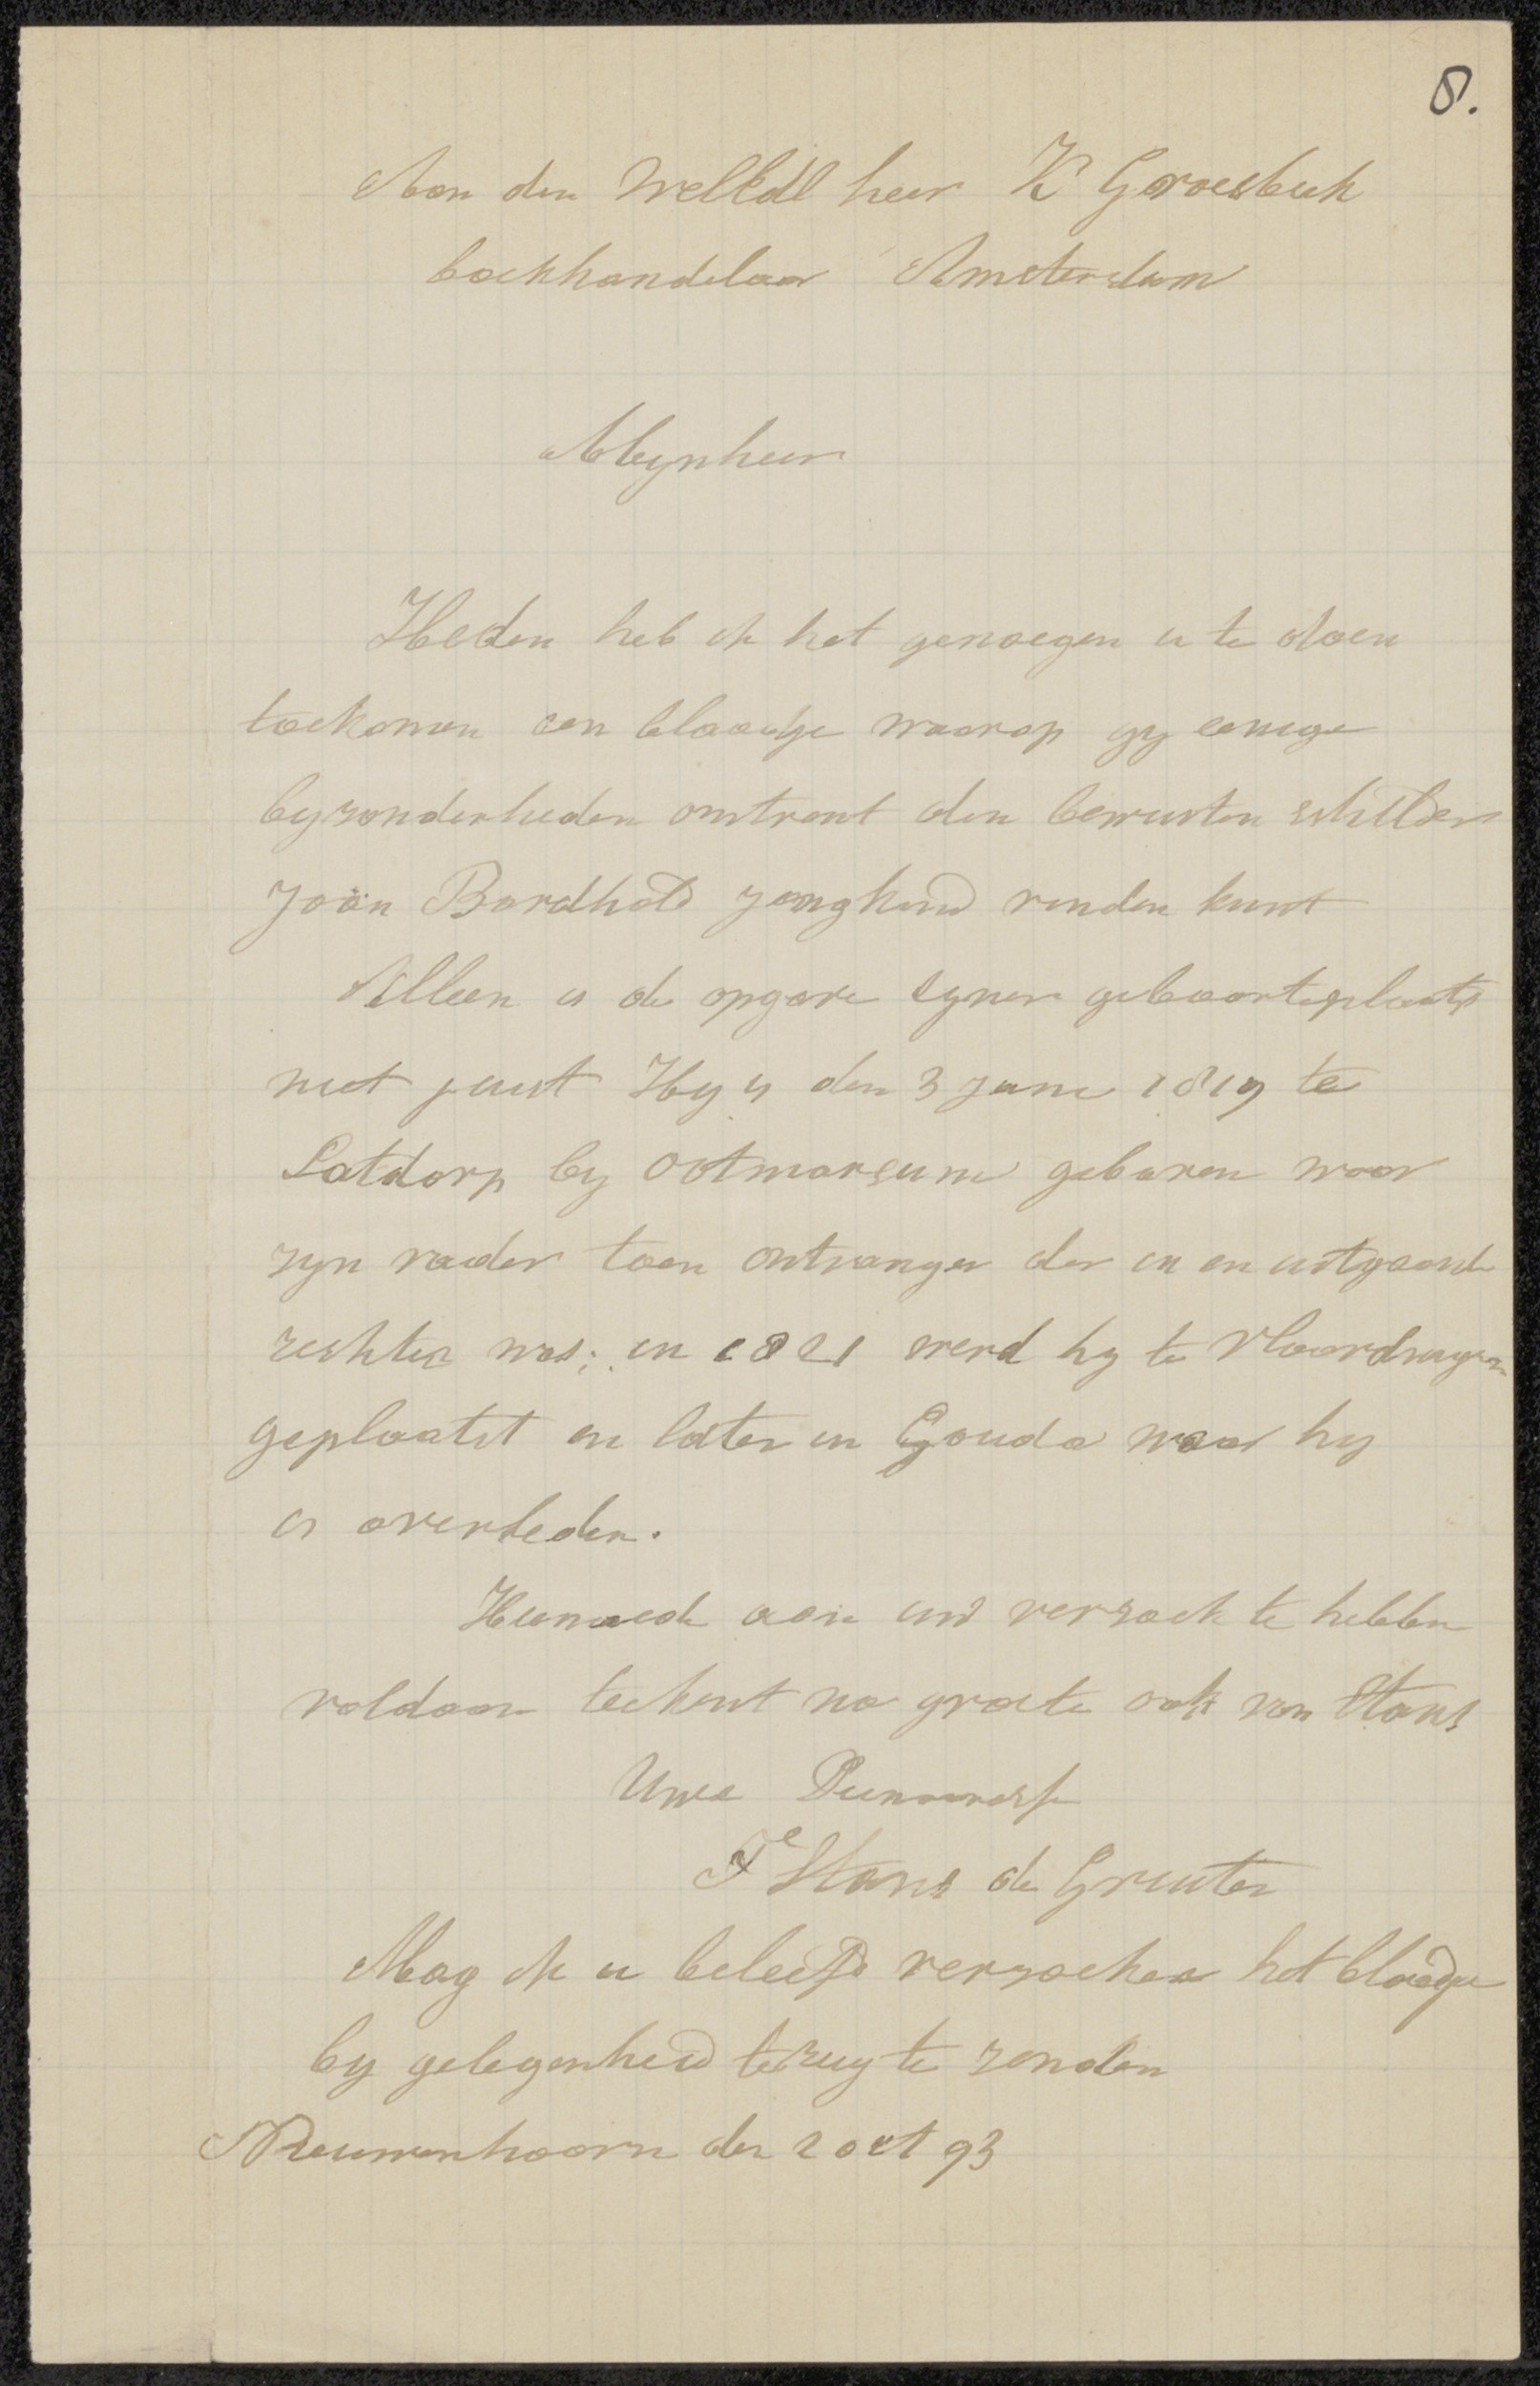 8.
Aan den WelEdl heer K Groesbeek
boekhandelaar Amsterdam
Mynheer
Heden heb ik het genoegen u te doen
toekomen een blaadje waarop gy eenige
byzonderheden omtrent den bewusten schilder
Joän Bardhold Jongkind vinden kunt
Alleen is de opgave zyner geboorteplaats
niet juist Hy is den 3 Juni 1819 te
Latdorp by Ootmarsum geboren waar
zyn vader toen ontvanger der in en uitgaande
rechten was; in 1821 werd hy te Vlaardingen
geplaatst en later in Gouda waar hy
is overleden.
Hiermede aan uw verzoek te hebben
voldaan teekent na groete ook van Stans
Uwe Dienaresse
Stans de Gruiter
Mag ik u beleefd verzoeken het blaadje
by gelegenheid terug te zenden
Nieuwenhoorn den 2 oct 93